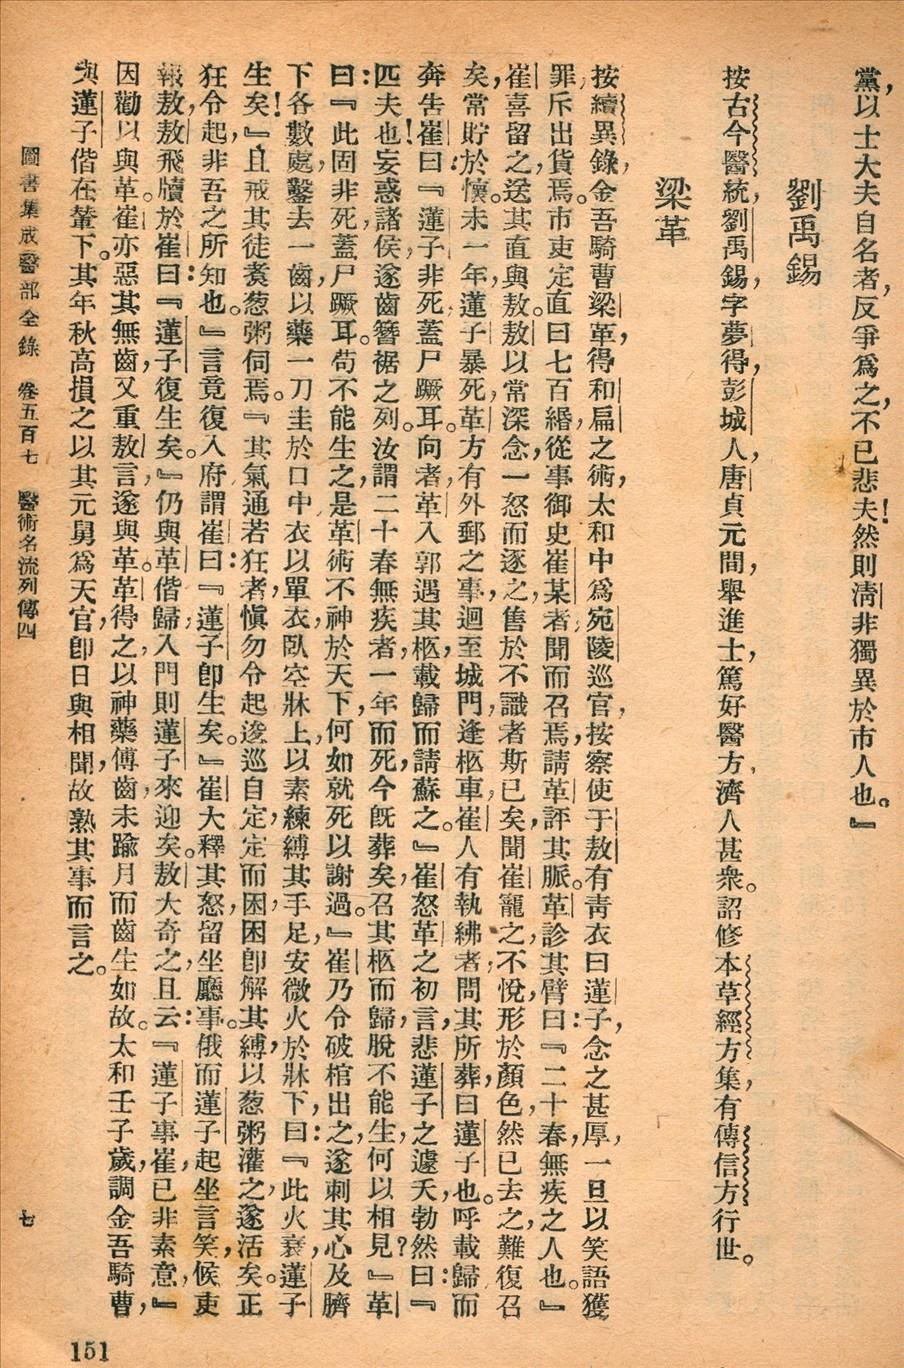 黨,以士大夫自名者,反爭爲之,不已悲夫!然則淸非獨異於市人也。』
劉禹錫
按古今醫統,劉禹錫,字夢得,彭城人,唐貞元間,舉進士,篤好醫方,濟人甚衆。詔修本草經方集,有傳信方行世。
梁革
按續異錄,金吾騎曹梁革,得和扁之術,太和中爲宛陵巡官,按察使于敖有靑衣曰蓮子,念之甚厚,一旦以笑語獲
罪,斥出貨焉。市吏定直曰七百緡,從事御史崔某者聞而召焉,請革評其脈。革診其臂曰:『二十春,無疾之人也。』
崔喜留之,送其直與敖。敖以常深念,一怒而逐之,售於不識者斯已矣,聞崔寵之,不悅,形於顏色,然已去之,難復召
矣,常貯於懷。未一年,蓮子暴死。革方有外郵之事,迴至城門,逢柩車,崔人有執紼者,問其所葬,曰蓮子也。呼載歸而
奔告崔曰:『蓮子非死,蓋尸蹶耳。向者革入郭,遇其柩,載歸而請蘇之。』崔怒革之初言,悲蓮子之遽夭,勃然曰:『
匹夫也!妄惑諸侯,遂齒簪裾之列。汝謂二十春無疾者,一年而死,今旣葬矣,召其柩而歸,脫不能生,何以相見?』革
曰:『此固非死,蓋尸蹶耳。苟不能生之,是革術不神於天下,何如就死以謝過。』崔乃令破棺出之,遂刺其心及臍
下各數處,鑿去一齒,以藥一刀圭於口中,衣以單衣,臥空牀上,以素練縛其手足,安微火於牀下,曰:『此火衰,蓮子
生矣!』且戒其徒煑葱粥伺焉。『其氣通若狂者,愼勿令起,逡巡自定,定而困,困卽解其縛,以葱粥灌之,遂活矣。正
狂令起,非吾之所知也。』言竟復入府謂崔曰:『蓮子卽生矣。』崔大釋其怒,留坐廳事。俄而蓮子起坐言笑,候吏
報敖,敖飛牘於崔曰:『蓮子復生矣。』仍與革偕歸,入門則蓮子來迎矣。敖大奇之,且云:『蓮子事崔,已非素意,』
因勸以與革。崔亦惡其無齒,又重敖言,遂與革。革得之,以神藥傅齒,未踰月而齒生如故。太和壬子歲,調金吾騎曹,
與蓮子偕在輦下。其年秋,高損之以其元舅爲天官,卽日與相聞,故熟其事而言之。
圖書集成醫部全錄 卷五百七 醫術名流列傳四
七
151